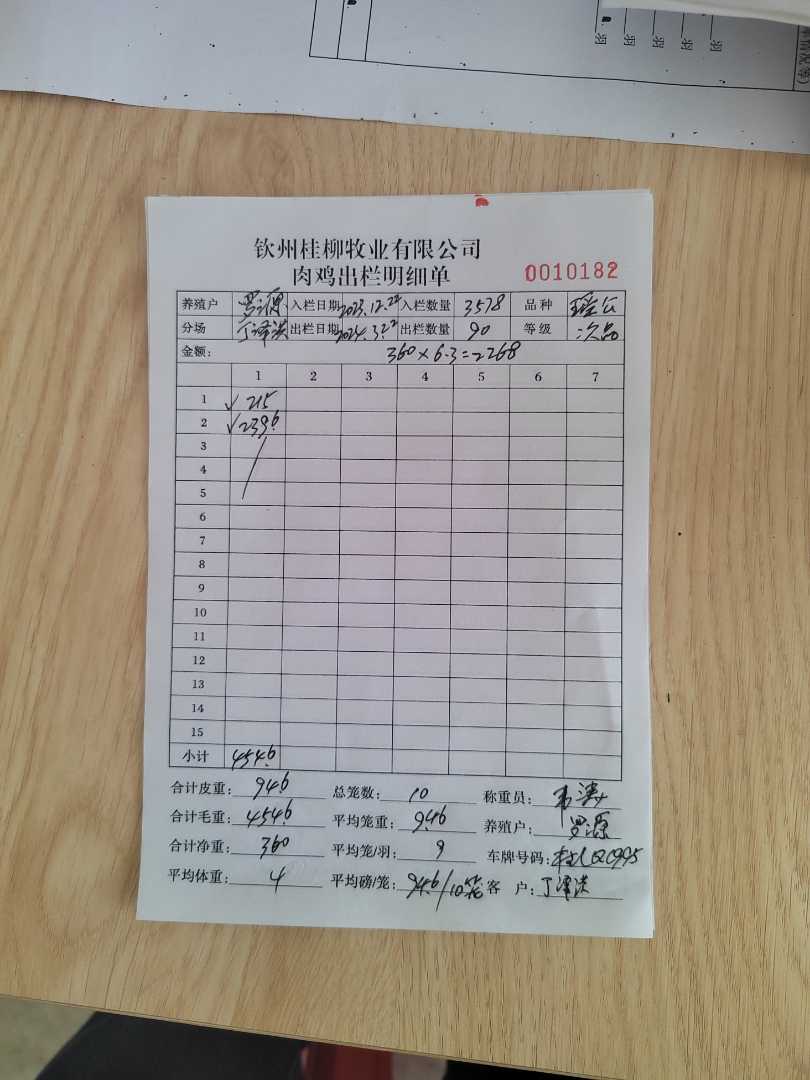 羽 羽 羽 羽 羽
钦州桂柳牧业有限公司
肉鸡出栏明细单 0010182
养殖户 罗源 入栏日期 2023.12.22 入栏数量 3578 品种 瑶公
分场 丁泽洪 出栏日期 2024.3.22 出栏数量 90 等级 次品
金额: 360×6.3=2268
1 2 3 4 5 6 7
1 √ 215
2 √ 239.6
3
4
5
6
7
8
9
10
11
12
13
14
15
小计 454.6
合计皮重: 94.6 总笼数: 10 称重员:
合计毛重: 454.6 平均笼重: 9.46 养殖户: 罗源
合计净重: 360 平均笼/羽: 9 车牌号码:
平均体重: 4 平均磅/笼: 94.6/10笼 客 户: 丁泽洪